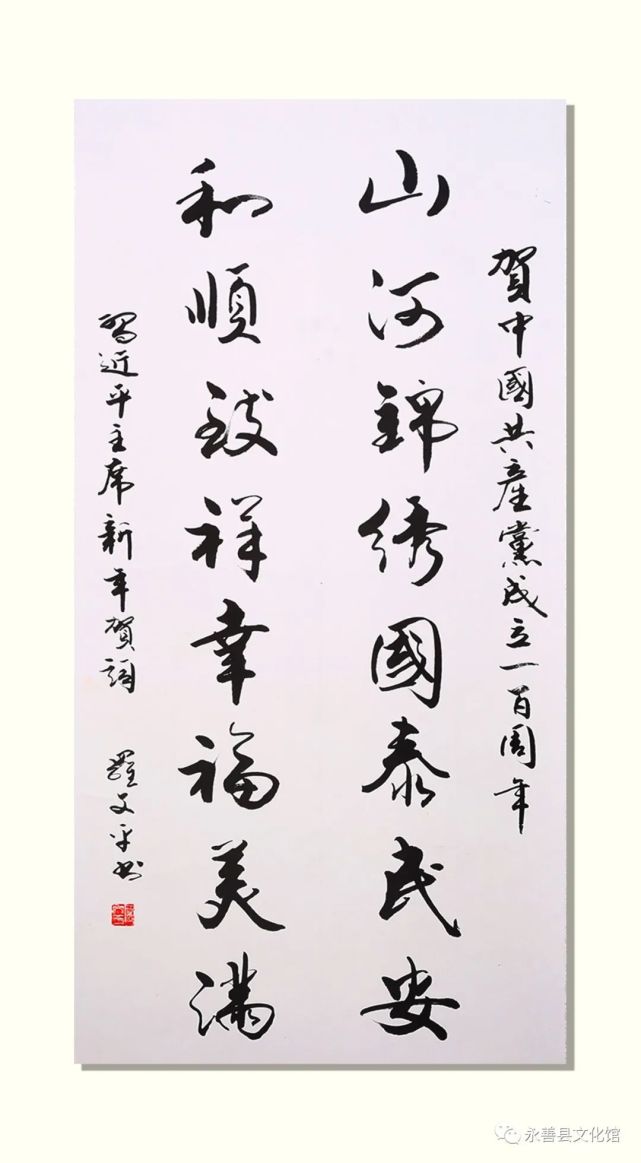 賀中國共産黨成立一百周年
山河錦绣國泰民安
和順致祥幸福美满
習近平主席新年賀詞
羅文平书
永善县文化馆